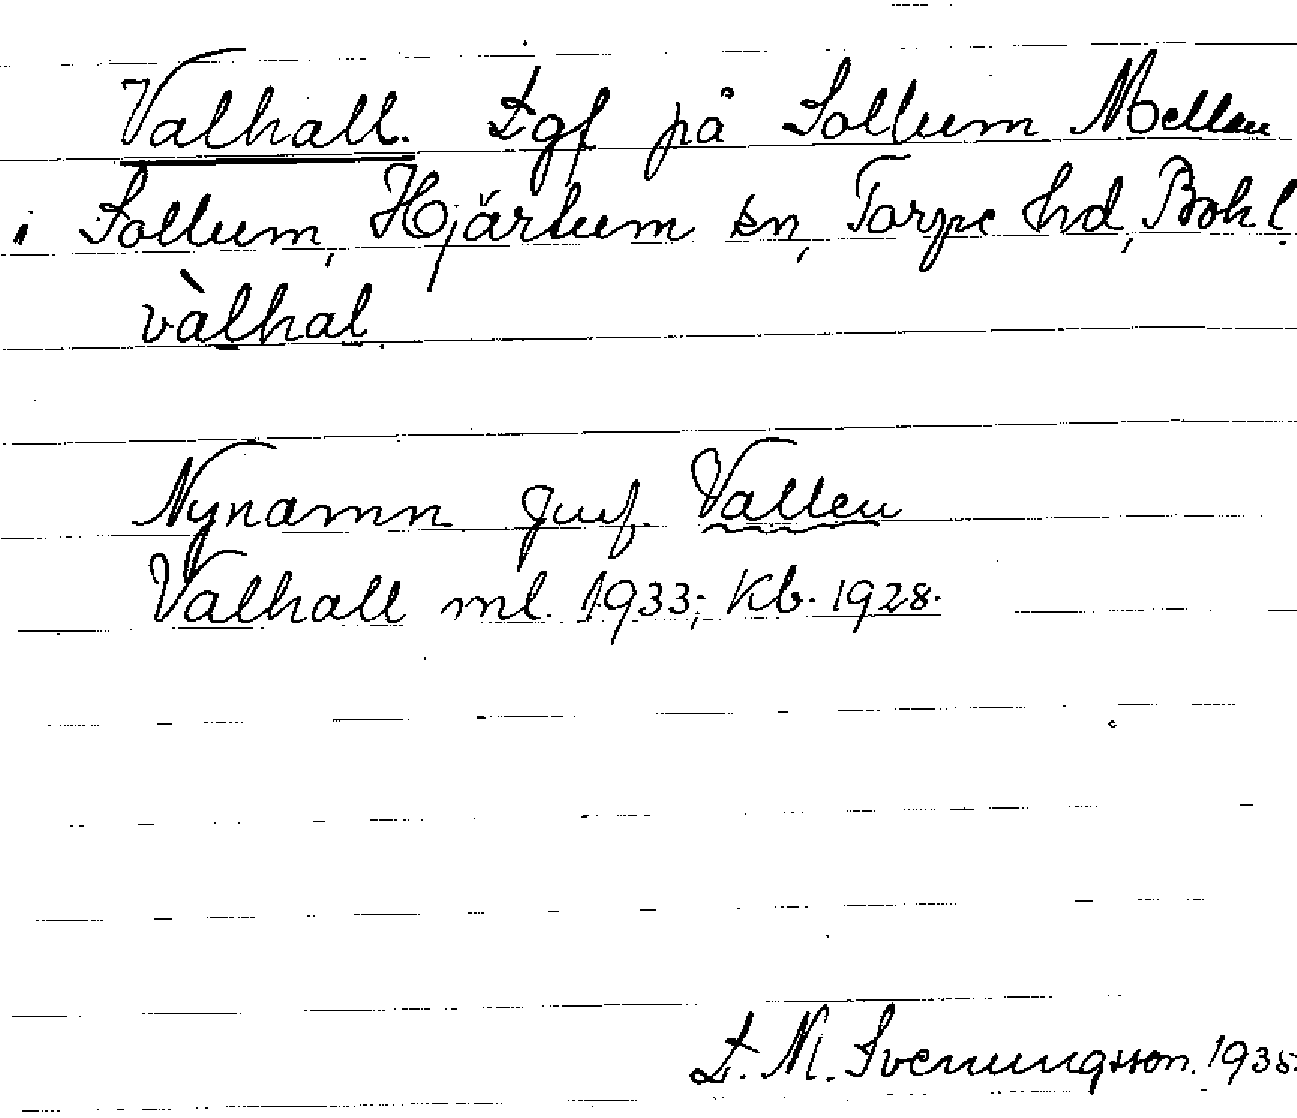 Valhall. Lgf på Sollum Mellan
i Sollum, Hjärtum sn, Torpe hd, Bohl.
vàlhal.
Nynamn. Jmf. Vallen
Valhall ml. 1933; Kb. 1928.
L. M. Svenungsson. 1935.